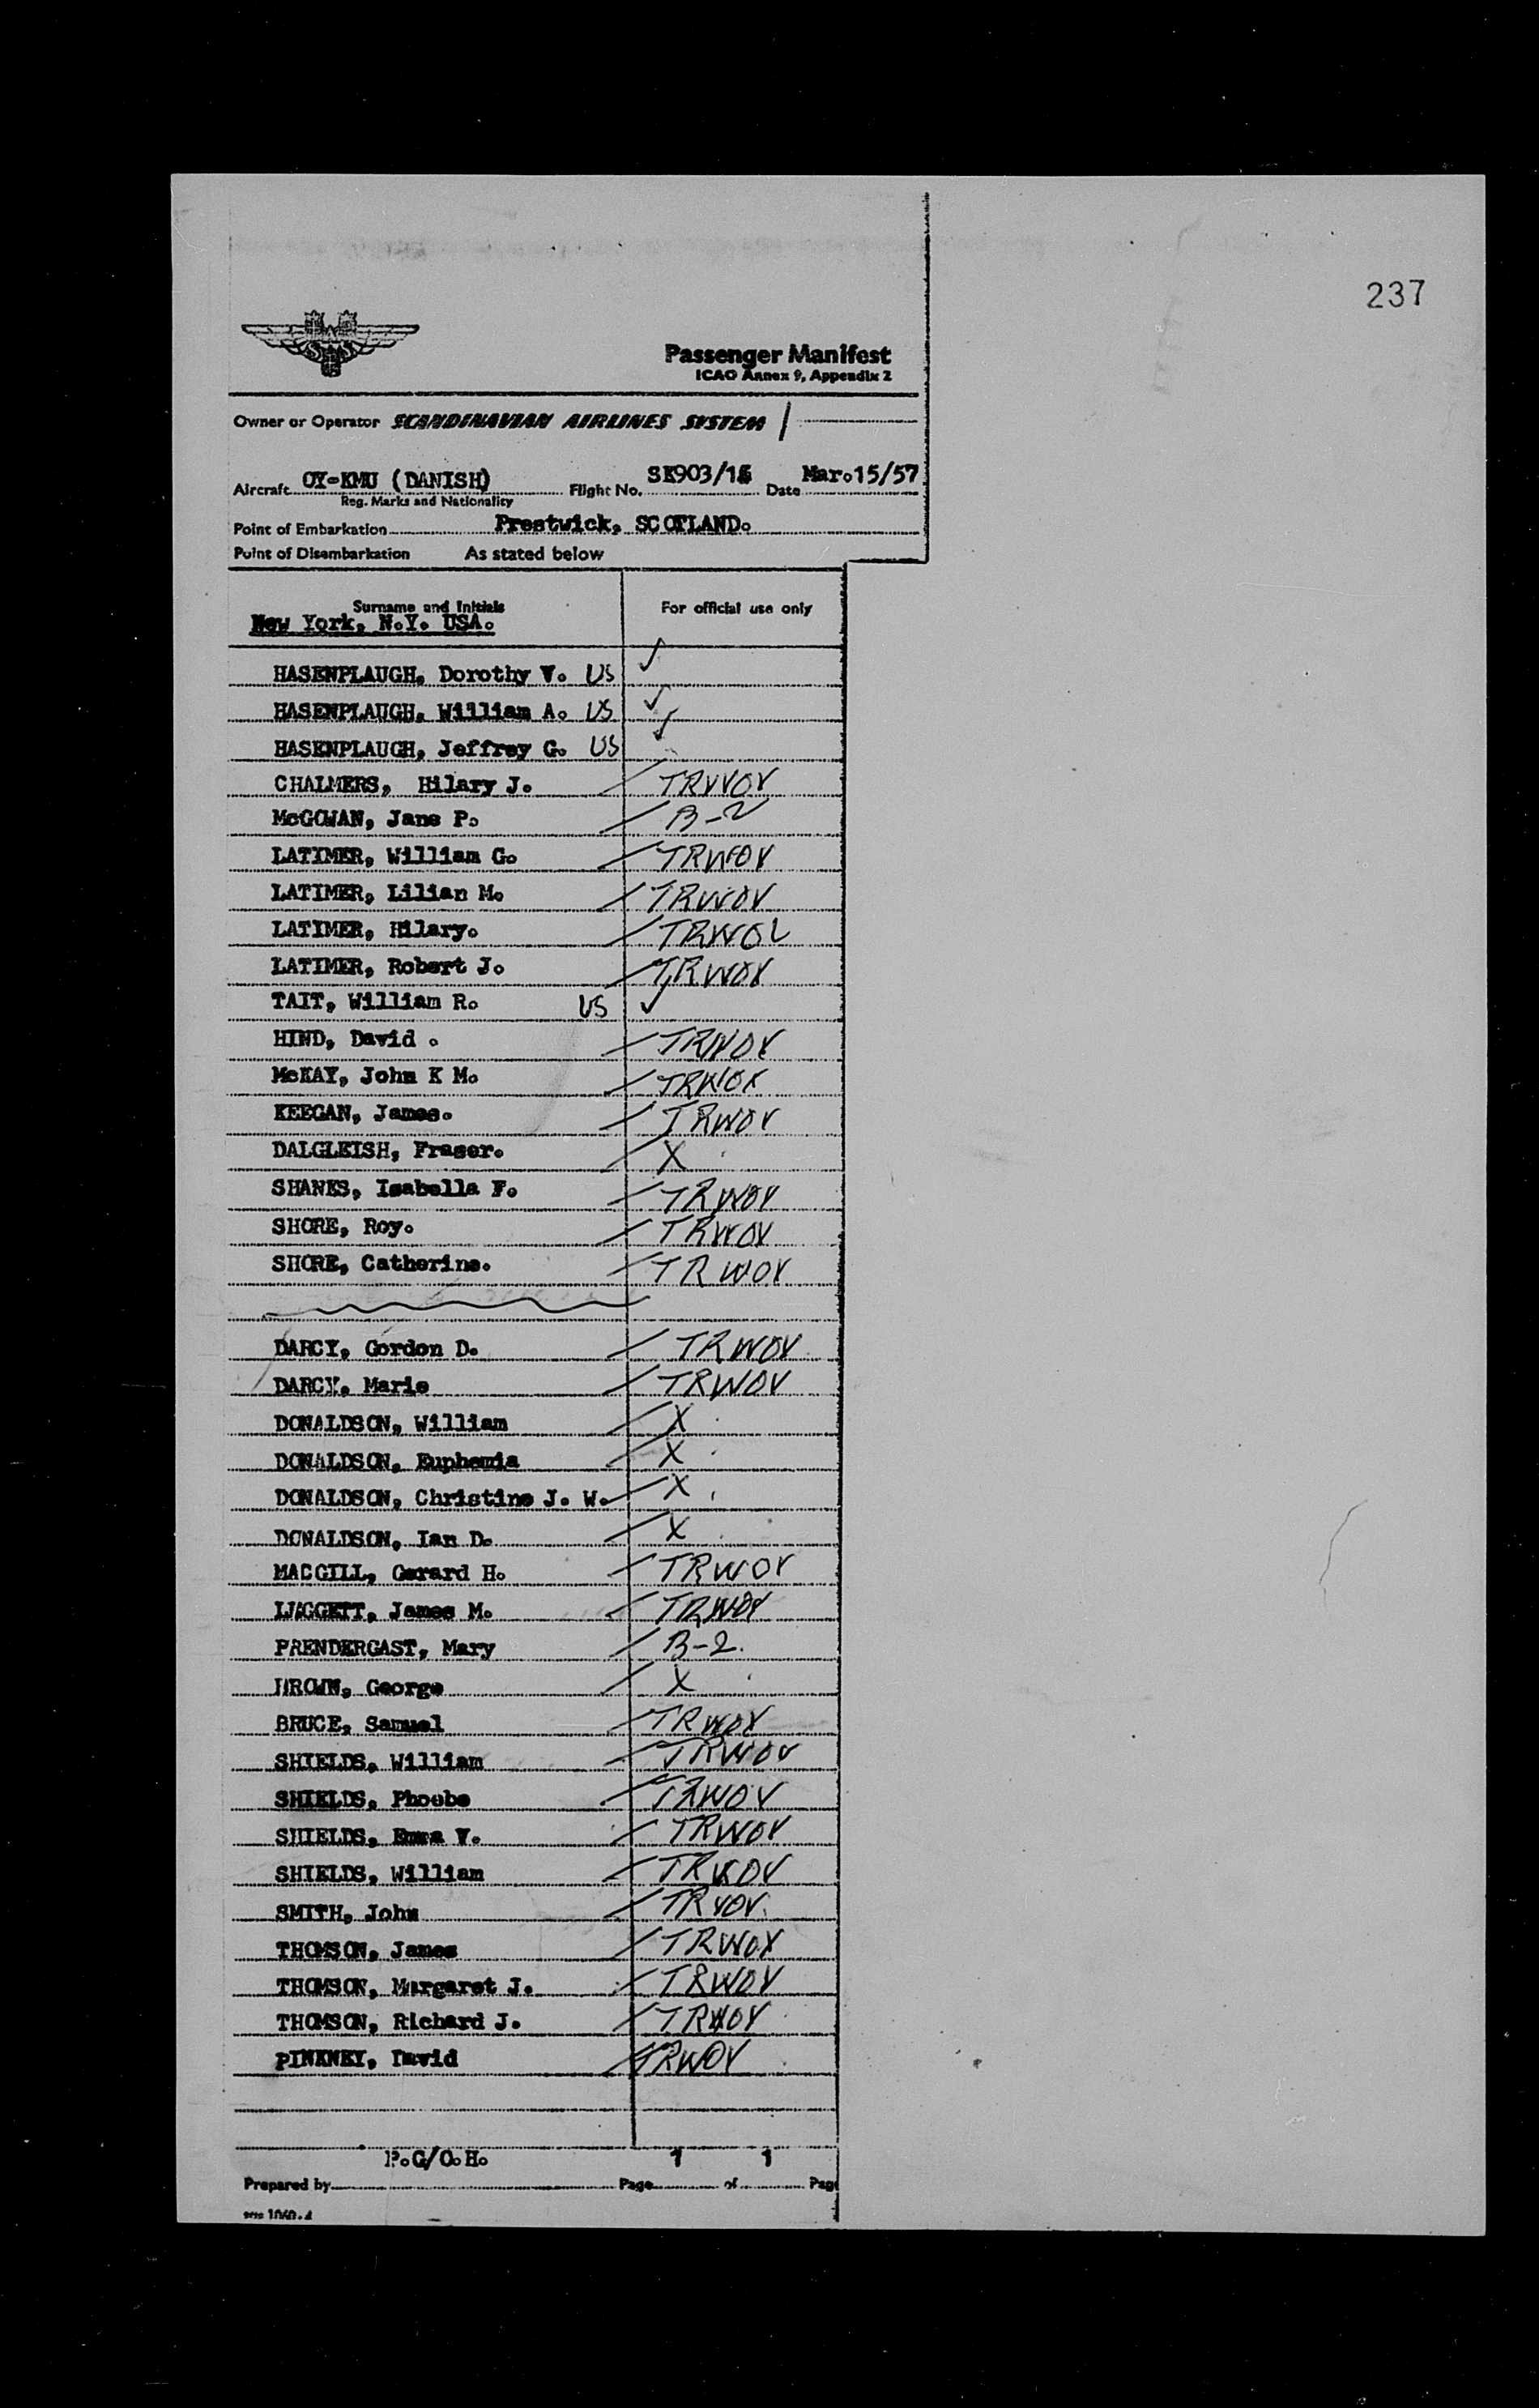 237
Passenger Manifest
ICAO Annex 9, Appendix 2
Owner or Operator SCANDINAVIAN AIRLINES SYSTEM /
Aircraft OY-KMU (DANISH) Flight No. SK903/15 Date Mar.15/57
Reg. Marks and Nationality
Point of Embarkation Prestwick, SCOTLAND.
Point of Disembarkation As stated below
Surname and Initials For official use only
New York, N.Y. USA.
HASENPLAUGH, Dorothy V. US ✓
HASENPLAUGH, William A. US ✓
HASENPLAUGH, Jeffrey G. US ✓
CHALMERS, Hilary J. / TRWOV
McGOWAN, Jane P. / B-2
LATIMER, William G. / TRWOV
LATIMER, Lilian M. / TRWOV
LATIMER, Hilary. / TRWOV
LATIMER, Robert J. / TRWOV
TAIT, William R. US ✓
HIND, David . / TRWOV
McKAY, John K M. / TRWOV
KEEGAN, James. / TRWOV
DALGLEISH, Fraser. / X
SHANKS, Isabella F. / TRWOV
SHORE, Roy. / TRWOV
SHORE, Catherine. / TRWOV
DARCY, Gordon D. / TRWOV
DARCY, Marie / TRWOV
DONALDSON, William / X
DONALDSON, Euphemia / X
DONALDSON, Christine J. W. / X
DONALDSON, Ian D. / X
MACGILL, Gerard H. / TRWOV
James M. / TRWOV
PRENDERGAST, Mary / B-2.
BROWN, George / X
BRUCE, Samuel / TRWOV
SHIELDS, William / TRWOV
SHIELDS, Phoebe / TRWOV
SHIELDS, Emma V. / TRWOV
SHIELDS, William / TRWOV
SMITH, John / TRWOV
THOMSON, James / TRWOV
THOMSON, Margaret J. / TRWOV
THOMSON, Richard J. / TRWOV
PINKNEY, David / TRWOV
P.G/O.H. 1 1
Prepared by Page of Pag